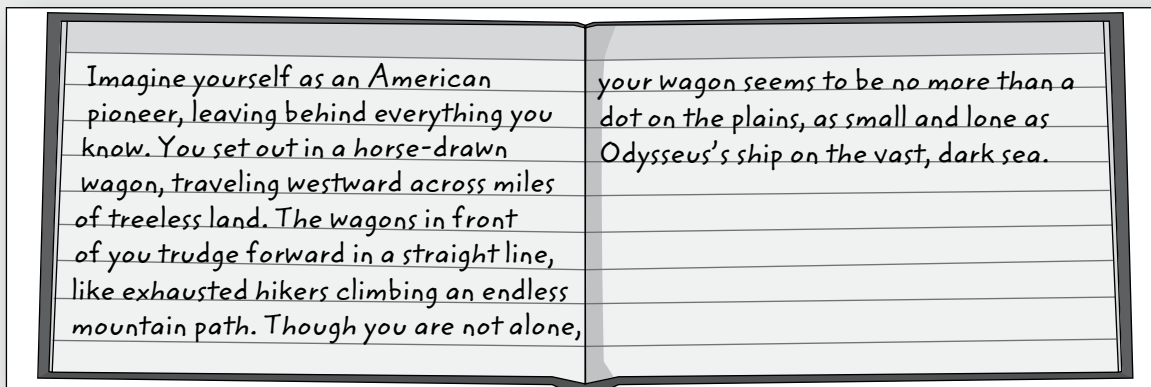 Imagine yourself as an American
pioneer, leaving behind everything you
know. You set out in a horse-drawn
wagon, traveling westward across miles
of treeless land. The wagons in front
of you trudge forward in a straight line,
like exhausted hikers climbing an endless
mountain path. Though you are not alone,
your wagon seems to be no more than a
dot on the plains, as small and lone as
Odysseus's ship on the vast, dark sea.